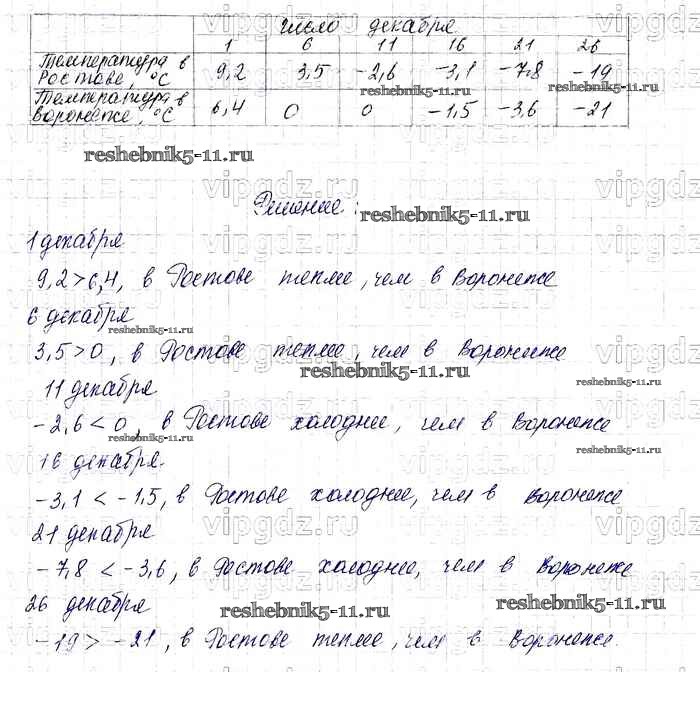 Число декабря
1 6 11 16 21 26
Температура в
Ростове, °С 9,2 3,5 -2,6 -3,1 -7,8 -19
Температура в
Воронеже, °С 6,4 0 0 -1,5 -3,6 -21
reshebnik5-11.ru
vipgdz.ru
Решение: reshebnik5-11.ru
1 декабря
9,2 > 6,4, в Ростове теплее, чем в Воронеже
6 декабря
reshebnik5-11.ru
3,5 > 0, в Ростове теплее, чем в Воронеже
reshebnik5-11.ru
11 декабря
reshebnik5-11.ru
-2,6 < 0, в Ростове холоднее, чем в Воронеже
reshebnik5-11.ru reshebnik5-11.ru
16 декабря.
-3,1 < -1,5, в Ростове холоднее, чем в Воронеже
vipgdz.ru
21 декабря
-7,8 < -3,6, в Ростове холоднее, чем в Воронеже
26 декабря reshebnik5-11.ru reshebnik5-11.ru
-19 > -21, в Ростове теплее, чем в Воронеже.